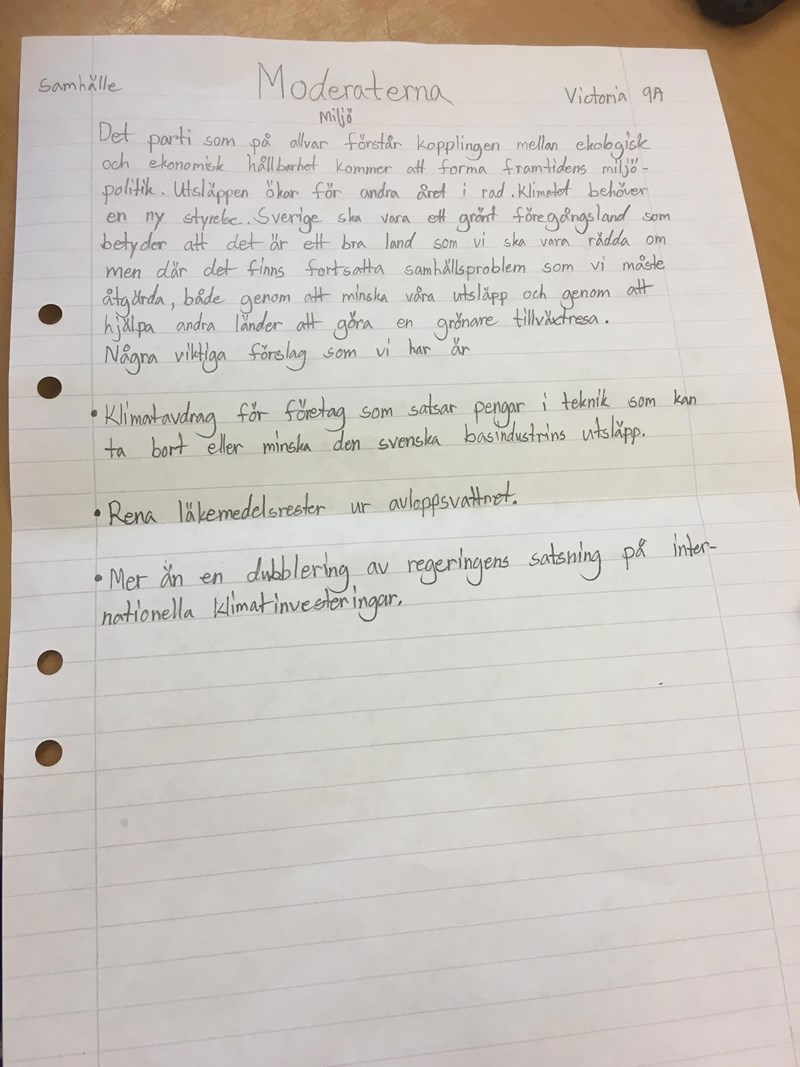 Samhälle
Moderaterna
Victoria 9A
Miljö
Det parti som på allvar förstår kopplingen mellan ekologisk
och ekonomisk hållbarhet kommer att forma framtidens miljö-
politik. Utsläppen ökar för andra året i rad. Klimatet behöver
en ny styrelse. Sverige ska vara ett grönt föregångsland som
betyder att det är ett bra land som vi ska vara rädda om
men där det finns fortsatta samhällsproblem som vi måste
åtgärda, både genom att minska våra utsläpp och genom att
hjälpa andra länder att göra en grönare tillväxtresa.
Några viktiga förslag som vi har är
• Klimatavdrag för företag som satsar pengar i teknik som kan
ta bort eller minska den svenska basindustrins utsläpp.
• Rena läkemedelsrester ur avloppsvattnet.
• Mer än en dubblering av regeringens satsning på inter-
nationella klimatinvesteringar.